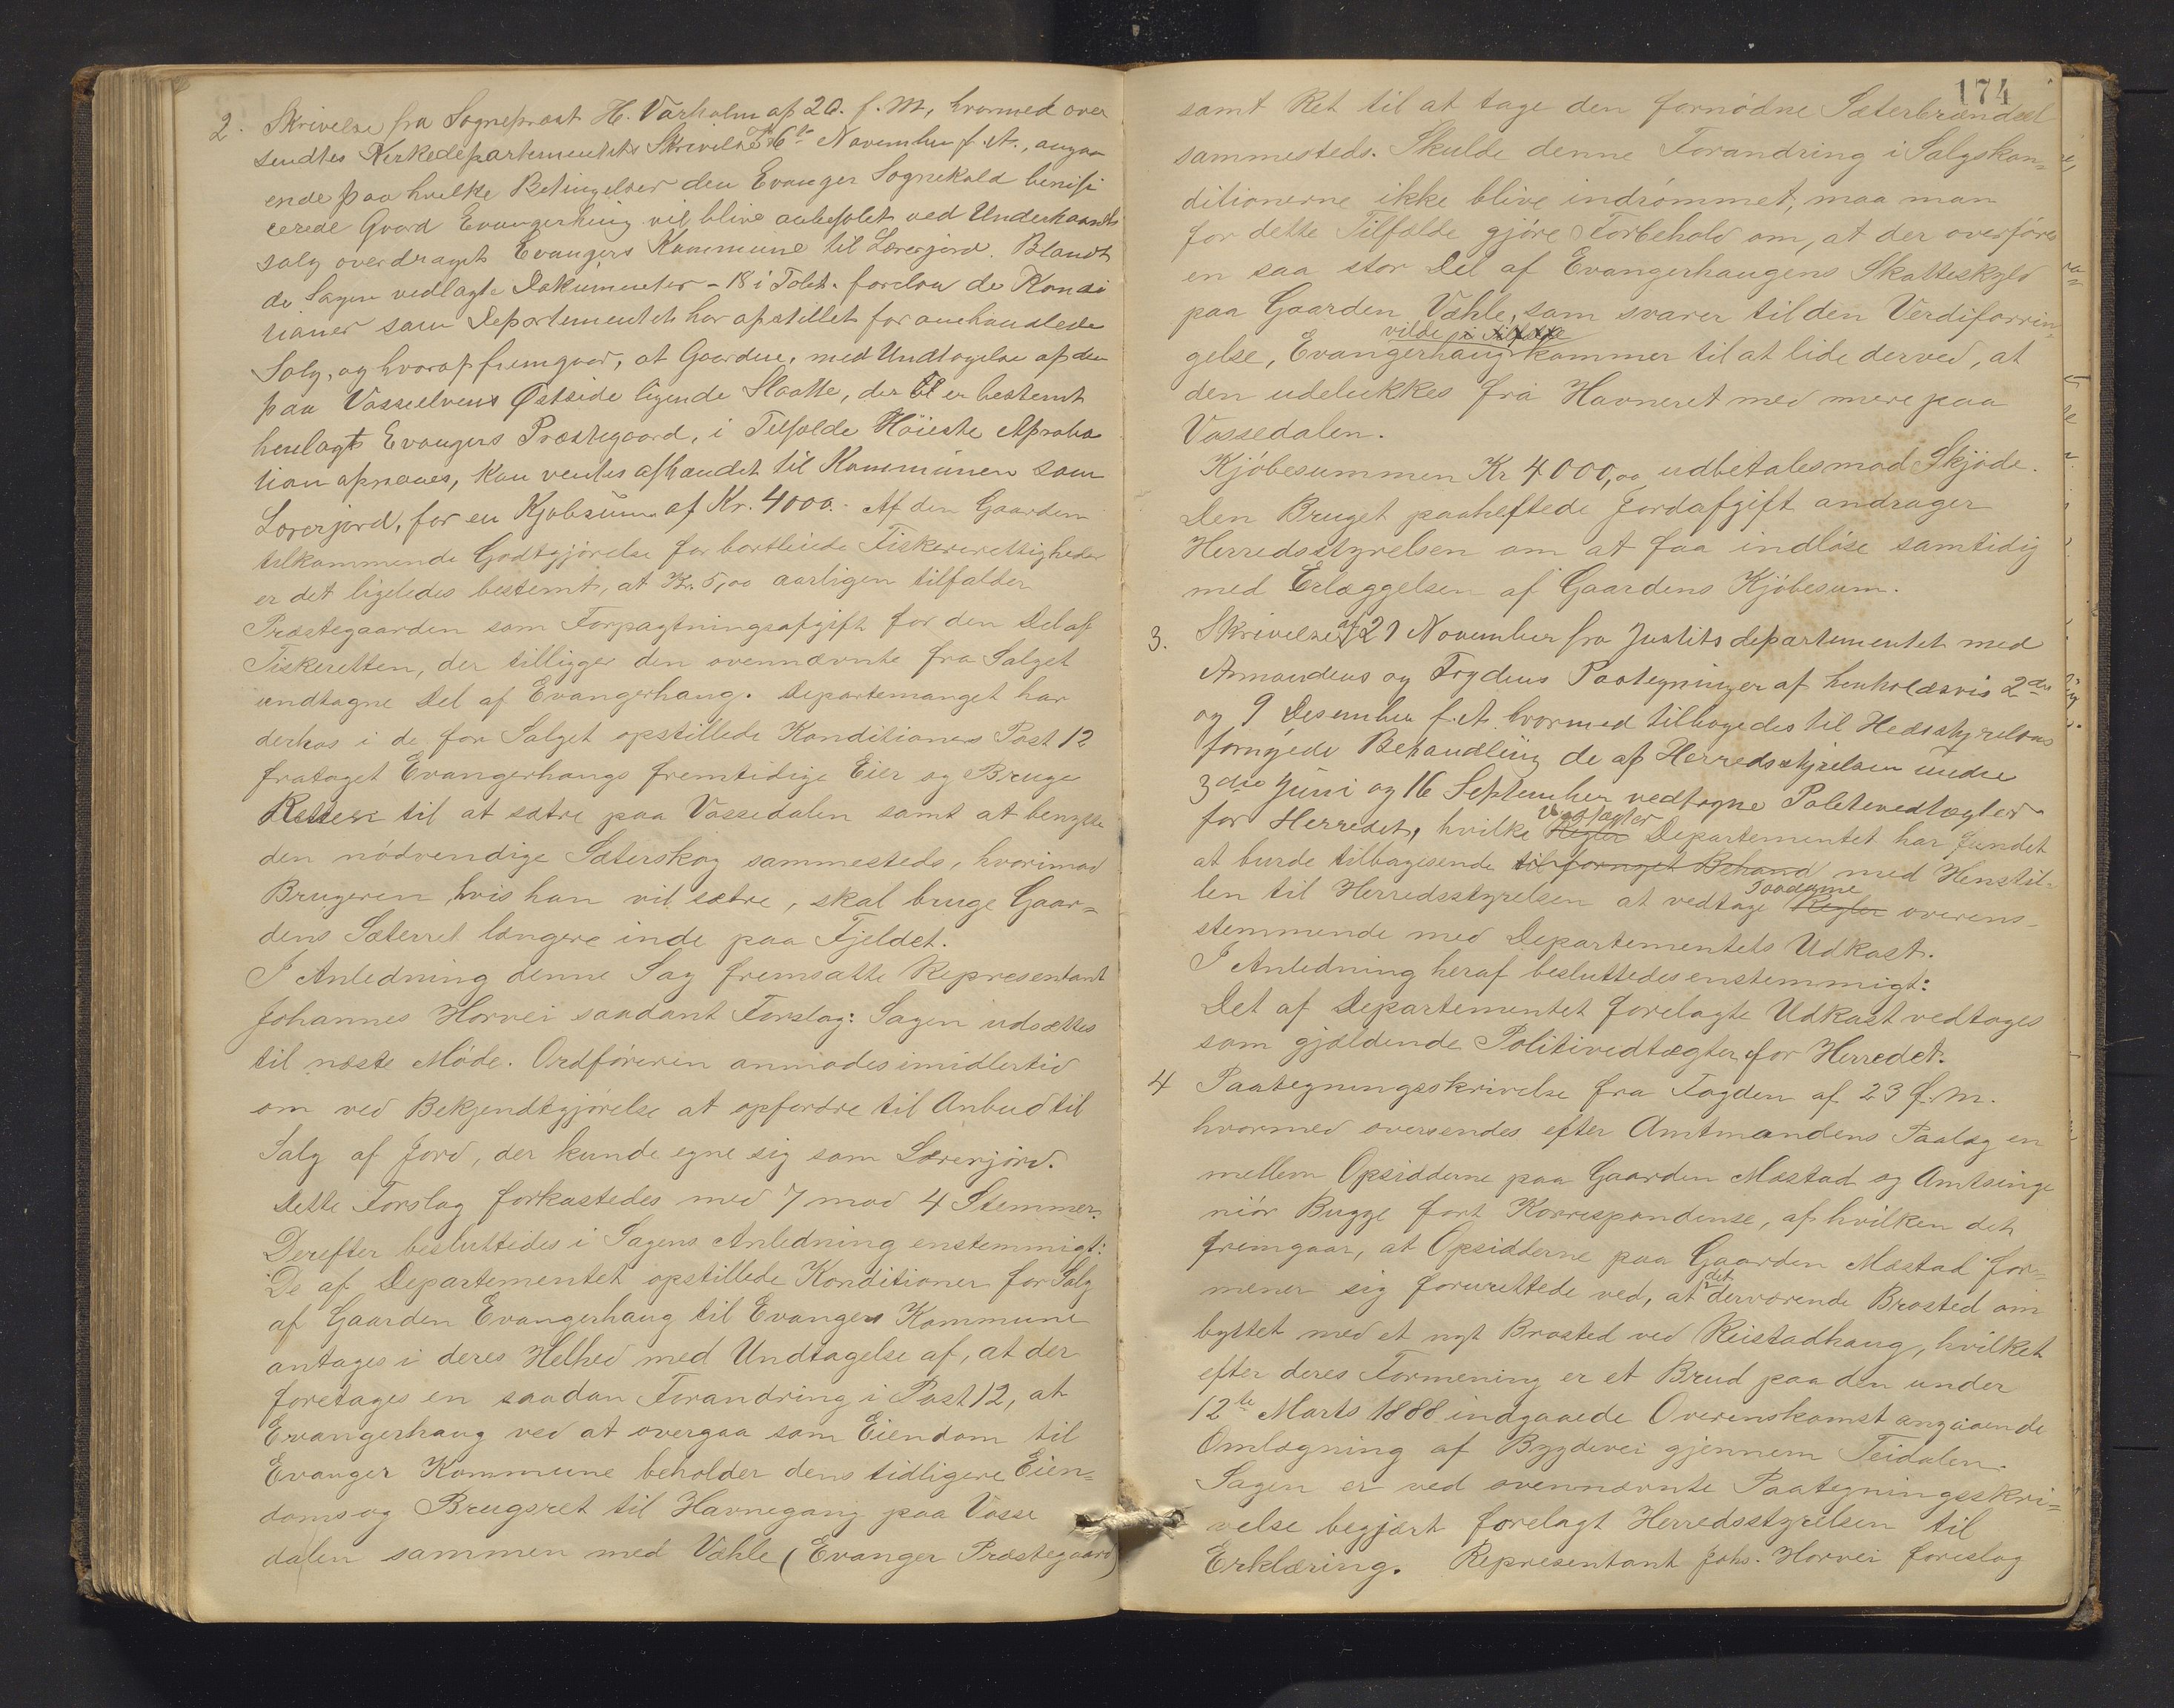 2. Skrivelse fra Sogneprest H. Varholm af 20. f. M., hvormed over
sendtes Kirkedepartementets Skrivelse af 6te November f. A., angaa
ende paa hvilke Betingelser den Evanger Sognekald benifi
cerede Gaard Evangerhaug vil blive anbefalet ved Underhaands
salg overdraget Evangers Kommune til Lærerjord. Blandt
de Sagen vedlagte Dokumenter - 18 i Talet - forelaa de Kondi
tioner som Departementet har opstillet for omhandlede
Salg, og hvoraf fremgaar, at Gaarden, med Undtagelse af den
paa Vosseelvens Østside ligende Slaatte, der er bestemt
henlagt Evangers Præstegaard, i Tilfælde Høieste Aproba
tion opnaaes, kan ventes afhændet til Kommunen som
Lærerjord, for en Kjøbesum af Kr. 4000.- Af den Gaarden
tilkommende Godtgjørelse for bortleiede Fiskerettigheder
er det ligeledes bestemt, at Kr. 5,00 aarligen tilfalder
Præstegaarden som Forpagtningsafgift for den Del af
Fiskeretten, der tilligger den ovennævnte fra Salget
undtagne Del af Evangerhaug. Departemanget har
derhos i de for Salget opstillede Konditioners Post 12
frataget Evangerhaugs fremtidige Eier og Bruge
Retten til at sætre paa Vossedalen samt at benytte
den nödvendige Sæterskog sammesteds, hvorimod
Brugeren hvis han vil sætre, skal bruge Gaar=
dens Sæterret længere inde paa Fjeldet.
I Anledning denne Sag fremsatte Representant
Johannes Horvei saadant Forslag: Sagen udsættes
til næste Møde. Ordføreren anmodes imidlertid
om ved Bekjendtgjørelse at opfordre til Anbud til
Salg af Jord, der kunde egne sig som Lærerjord.
Dette Forslag forkastedes med 7 mod 4 Stemmer.
Derefter besluttedes i Sagens Anledning enstemmigt:
De af Departementet opstillede Konditioner for Salg
af Gaarden Evangerhaug til Evangers Kommune
antages i deres Helhed med Undtagelse af, at der
foretages en saadan Forandring i Post 12, at
Evangerhaug ved at overgaa som Eiendom til
Evanger Kommune beholder dens tidligere Eien=
doms og Brugsret til Havnegang paa Vosse
dalen sammen med Væhle (Evanger Præstegaard)
174
samt Ret til at tage den fornödne Sæterbrændsel
sammesteds. Skulde denne Forandring i Salgskon=
ditionerne ikke blive indrömmet, maa man
for dette Tilfælde gjöre Forbehold om, at der overföres
en saa stor Del af Evangerhaugens Skatteskyld
paa Gaarden Væhle, som svarer til den Verdiforrin=
vilde
gelse, Evangerhaug kommer til at lide derved, at
den udelukkes fra Havneret med mere paa
Vossedalen.
Kjöbesummen Kr 4000,00 udbetales mod Skjöde.
Den Bruget paaheftede Jordafgift andrager
Herredsstyrelsen om at faa indlöse samtidig
med Erlæggelsen af Gaardens Kjöbesum.
3. Skrivelse af 21 November fra Justitsdepartementet med
Amandens og Fogdens Paategninger af henholdsvis 2den
og 9 Desember f. A. hvormed tilbagedes til Hedsstyrelsens
fornyede Behandling de af Herredsstyrelsen under
3die Juni og 16 September vedtagne Politivedtægter
Vedtægter
for Herredet, hvilke Regler Departementet har fundet
at burde tilbagesende til fornyet Behand med Henstil=
Saadanne
len til Herredsstyrelsen at vedtage Regler overens-
stemmende med Departementets Udkast.
I Anledning heraf besluttedes enstemmigt:
Det af Departementet forelagte Udkast vedtages
som gjældende Politivedtægter for Herredet.
4 Paategningsskrivelse fra Fogden af 23 f. M.
hvormed oversendes efter Amtmandens Paalæg en
mellem Opsidderne paa Gaarden Mæstad og Amtsinge
niör Bugge fört Korrespondense, af hvilken det
fremgaar, at Opsidderne paa Gaarden Mæstad for=
det
mener sig forurettede ved, at derværende Brosted om
byttet med et nyt Brosted ved Reistadhaug, hvilket
efter deres Formening er et Brud paa den under
12te Marts 1888 indgaaede Overenskomst angaaende
Omlægning af Bygdevei gjennem Teidalen.
Sagen er ved ovennævnte Paategningsskri=
velse begjært forelagt Herredsstyrelsen til
Erklæring. Representant Johs. Horvei foreslog